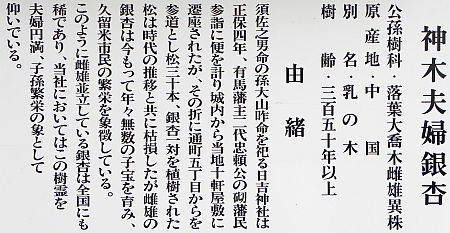 神木夫婦銀杏
公孫樹科・落葉大喬木雌雄異株
原産地・中国
別名・乳の木
樹齢・三百五十年以上
由緒
須佐之男命の孫大山咋命を祀る日吉神社は
正保四年、有馬藩主二代忠頼公の砌藩民
参詣に便を計り城内から当地十軒屋敷に
遷座されたが、その折に通町五丁目からを
参道とし松三十本、銀杏一対を植樹された
松は時代の推移と共に枯損したが雌雄の
銀杏は今もって年々無数の子宝を育み、
久留米市民の繁栄を象徴している。
このように雌雄並立している銀杏は全国にも
稀であり、当社においてはこの樹霊を
夫婦円満、子孫繁栄の象として
仰いている。